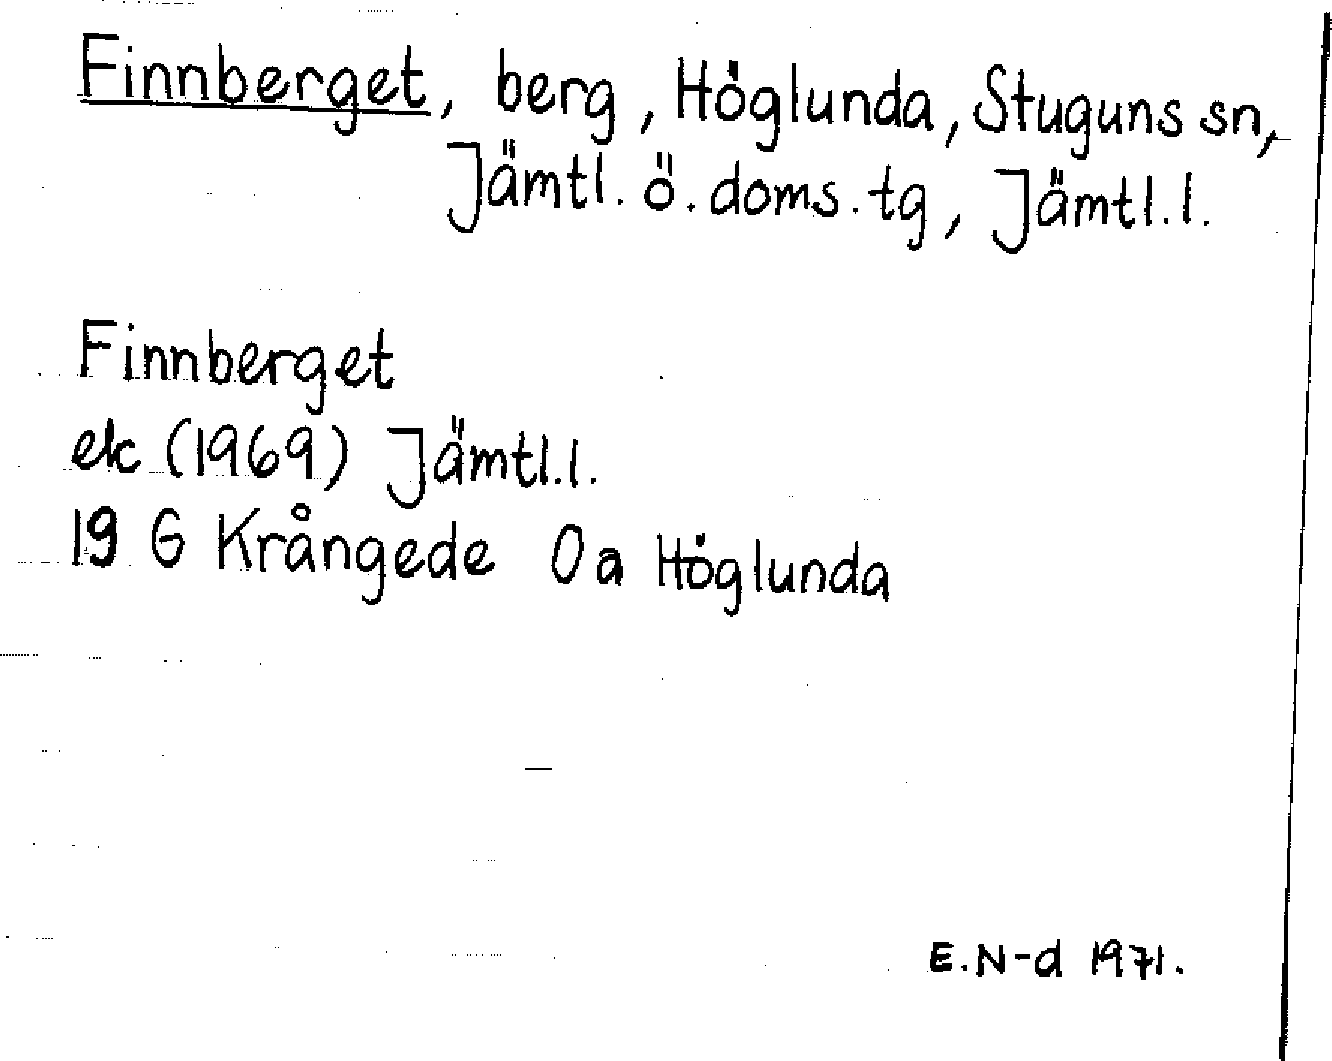 Finnberget, berg, Höglunda, Stuguns sn,
Jämtl. ö. doms. tg, Jämtl. l.
Finnberget
ek (1969) Jämtl. l.
19 G Krångede 0a Höglunda
E. N-d 1971.